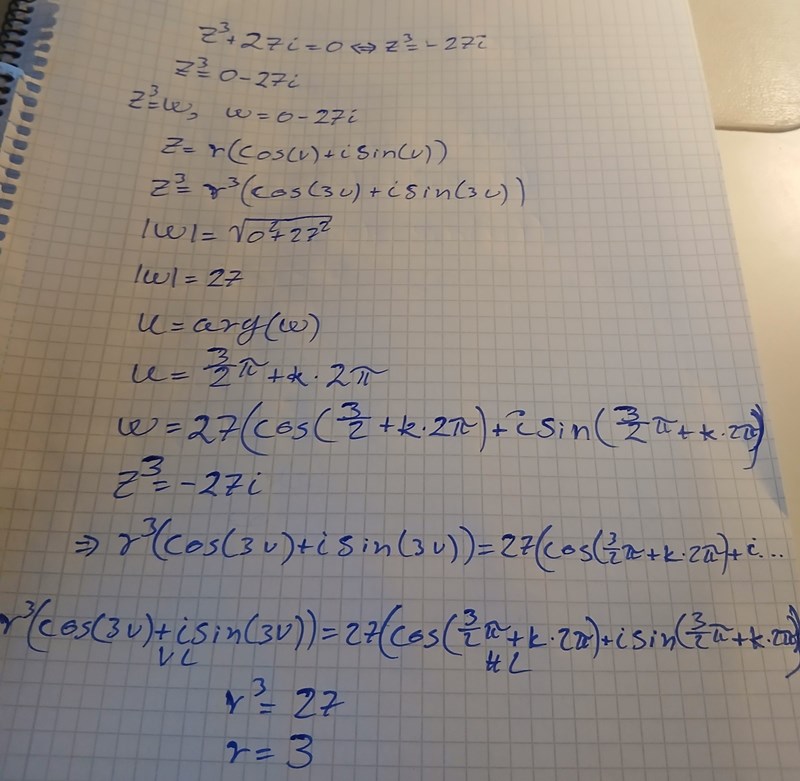 z³+27i=0 ⇔ z³=-27i
z³=0-27i
z³=w, w=0-27i
z=r(cos(v)+isin(v))
z³=r³(cos(3v)+isin(3v))
|w|=√0²+27²
|w|=27
u=arg(w)
u=3/2π+k·2π
w=27(cos(3/2+k·2π)+isin(3/2π+k·2π)
z³=-27i
⇒ r³(cos(3v)+isin(3v))=27(cos(3/2π+k·2π)+i...
r³(cos(3v)+isin(3v))=27(cos(3/2π+k·2π)+isin(3/2π+k·2π)
VL HL
r³=27
r=3